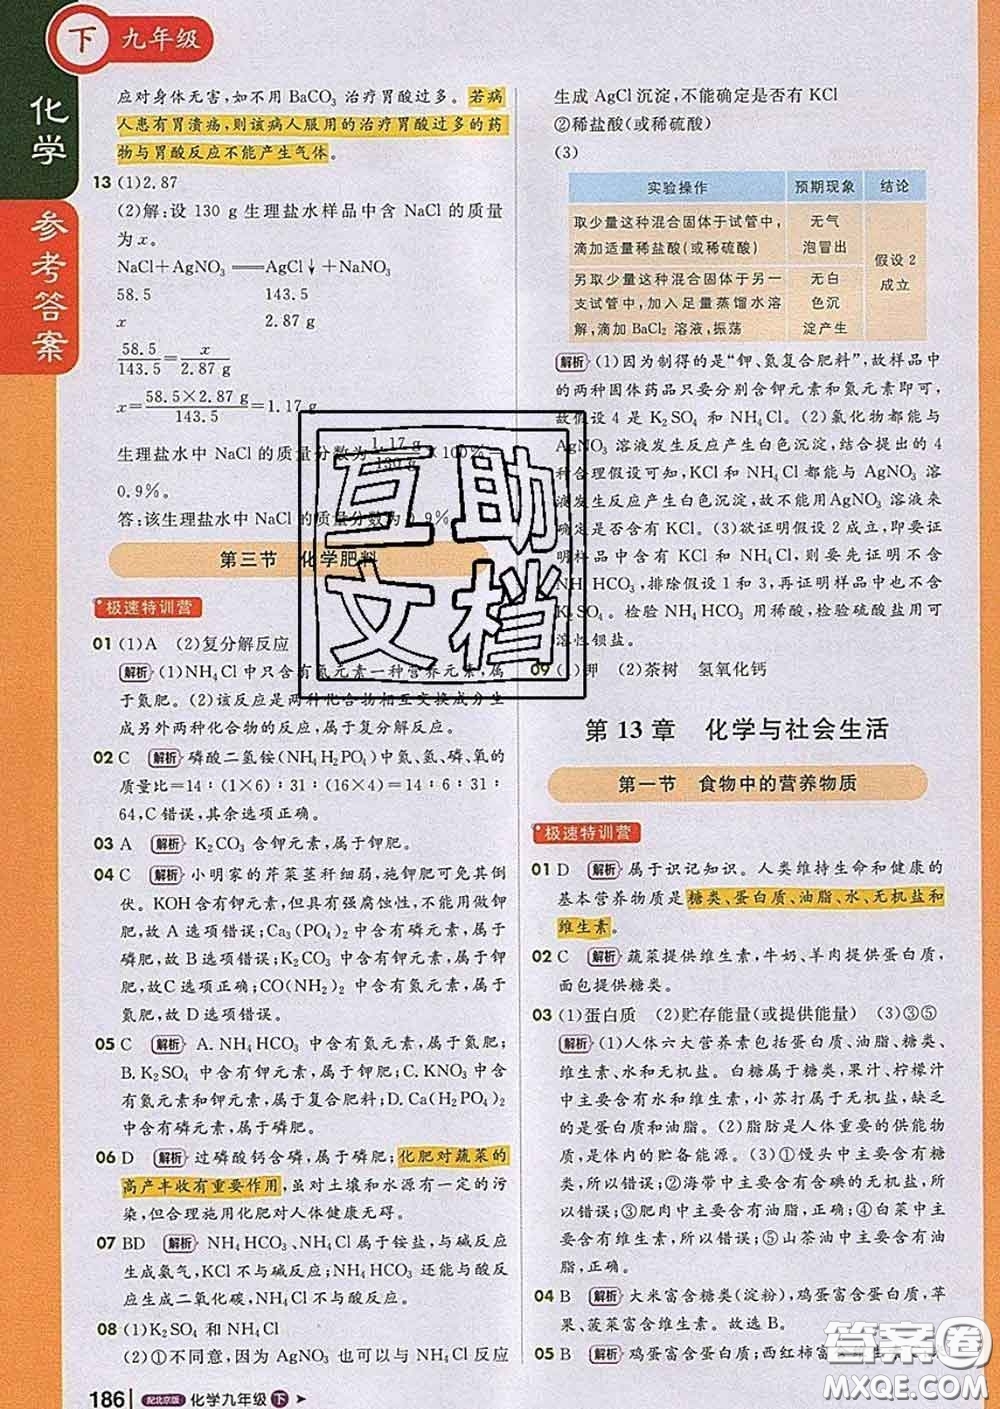 下 九年级
化学
参考答案
应对身体无害,如不用 BaCO₃ 治疗胃酸过多。若病
人患有胃溃疡,则该病人服用的治疗胃酸过多的药
物与胃酸反应不能产生气体。
13 (1)2.87
(2)解:设 130 g 生理盐水样品中含 NaCl 的质量
为 x。
NaCl+AgNO₃══AgCl↓+NaNO₃
58.5 143.5
x 2.87 g
58.5/143.5=x/2.87 g
x=58.5×2.87 g/143.5=1.17 g
生理盐水中 NaCl 的质量分数为1.17 g/130 g×100%
0.9%。
答:该生理盐水中 NaCl 的质量分数为0.9%
第三节 化学肥料
极速特训营
01 (1)A (2)复分解反应
解析 (1)NH₄Cl 中只含有氮元素一种营养元素,属
于氮肥。(2)该反应是两种化合物相互交换成分生
成另外两种化合物的反应,属于复分解反应。
02 C 解析 磷酸二氢铵(NH₄H₂PO₄)中氮、氢、磷、氧的
质量比=14∶(1×6)∶31∶(16×4)=14∶6∶31∶
64,C 错误,其余选项正确。
03 A 解析 K₂CO₃ 含钾元素,属于钾肥。
04 C 解析 小明家的芹菜茎秆细弱,施钾肥可免其倒
伏。KOH含有钾元素,但具有强腐蚀性,不能用做钾
肥,故 A 选项错误;Ca₃(PO₄)₂ 中含有磷元素,属于
磷肥,故 B 选项错误;K₂CO₃ 中含有钾元素,属于钾
肥,故C选项正确;CO(NH₂)₂ 中含有氮元素,属于
氮肥,故 D 选项错误。
05 C 解析 A.NH₄HCO₃ 中含有氮元素,属于氮肥;
B.K₂SO₄ 中含有钾元素,属于钾肥;C.KNO₃ 中含
有氮元素和钾元素,属于复合肥料;D.Ca(H₂PO₄)₂
中含有磷元素,属于磷肥。
06 D 解析 过磷酸钙含磷,属于磷肥;化肥对蔬菜的
高产丰收有重要作用,虽对土壤和水源有一定的污
染,但合理施用化肥对人体健康无碍。
07 BD 解析 NH₄HCO₃、NH₄Cl 属于铵盐,与碱反应
生成氨气,KCl 不与碱反应;NH₄HCO₃ 还能与酸反
应生成二氧化碳,NH₄Cl 不与酸反应。
08 (1)K₂SO₄ 和 NH₄Cl
(2)①不同意,因为 AgNO₃ 也可以与 NH₄Cl 反应
186 配北京版 化学九年级 下
生成 AgCl 沉淀,不能确定是否有 KCl
②稀盐酸(或稀硫酸)
(3)
实验操作 预期现象 结论
取少量这种混合固体于试管中,
滴加适量稀盐酸(或稀硫酸)
无气
泡冒出
另取少量这种混合固体于另一
支试管中,加入足量蒸馏水溶
解,滴加 BaCl₂ 溶液,振荡
无白
色沉
淀产生
假设 2
成立
解析 (1)因为制得的是“钾、氮复合肥料”,故样品中
的两种固体药品只要分别含钾元素和氮元素即可,
故假设 4 是 K₂SO₄ 和 NH₄Cl。(2)氯化物都能与
AgNO₃ 溶液发生反应产生白色沉淀,结合提出的 4
种合理假设可知,KCl 和 NH₄Cl 都能与 AgNO₃ 溶
液发生反应产生白色沉淀,故不能用AgNO₃ 溶液来
确定是否有 KCl。(3)欲证明假设 2 成立,即要证
明样品中含有 KCl 和 NH₄Cl,则要先证明不含
NH₄HCO₃,排除假设 1 和 3,再证明样品中不含
K₂SO₄。检验 NH₄HCO₃ 用稀酸,检验硫酸盐用可
溶性钡盐。
09 (1)钾 (2)茶树 氢氧化钙
第 13 章 化学与社会生活
第一节 食物中的营养物质
极速特训营
01 D 解析 属于识记知识。人类维持生命和健康的
基本营养物质是糖类、蛋白质、油脂、水、无机盐和
维生素。
02 C 解析 蔬菜提供维生素,牛奶、羊肉提供蛋白质,
面包提供糖类。
03 (1)蛋白质 (2)贮存能量(或提供能量) (3)③⑤
解析 (1)人体六大营养素包括蛋白质、油脂、糖类、
维生素、水和无机盐。白糖属于糖类,果汁、柠檬汁
中主要含有水和维生素,小苏打属于无机盐,缺乏
的是蛋白质。(2)脂肪是人体重要的供能物质,
质,是人体内的贮备能源。
(3)①馒头中主要含有淀粉,
所以错误;②海带中主要含有含碘的无机盐,所
以错误;③肥肉中主要含有油脂,正确;④白菜中主
要含有维生素,所以错误;⑤山茶油中主要含有油
脂,正确。
04 B 解析 大米富含糖类(淀粉),鸡蛋富含蛋白质,苹
果、菠菜富含维生素。故选 B。
05 B 解析 鸡蛋富含蛋白质;西红柿富
互助
文档
答案圈
MXQE.COM